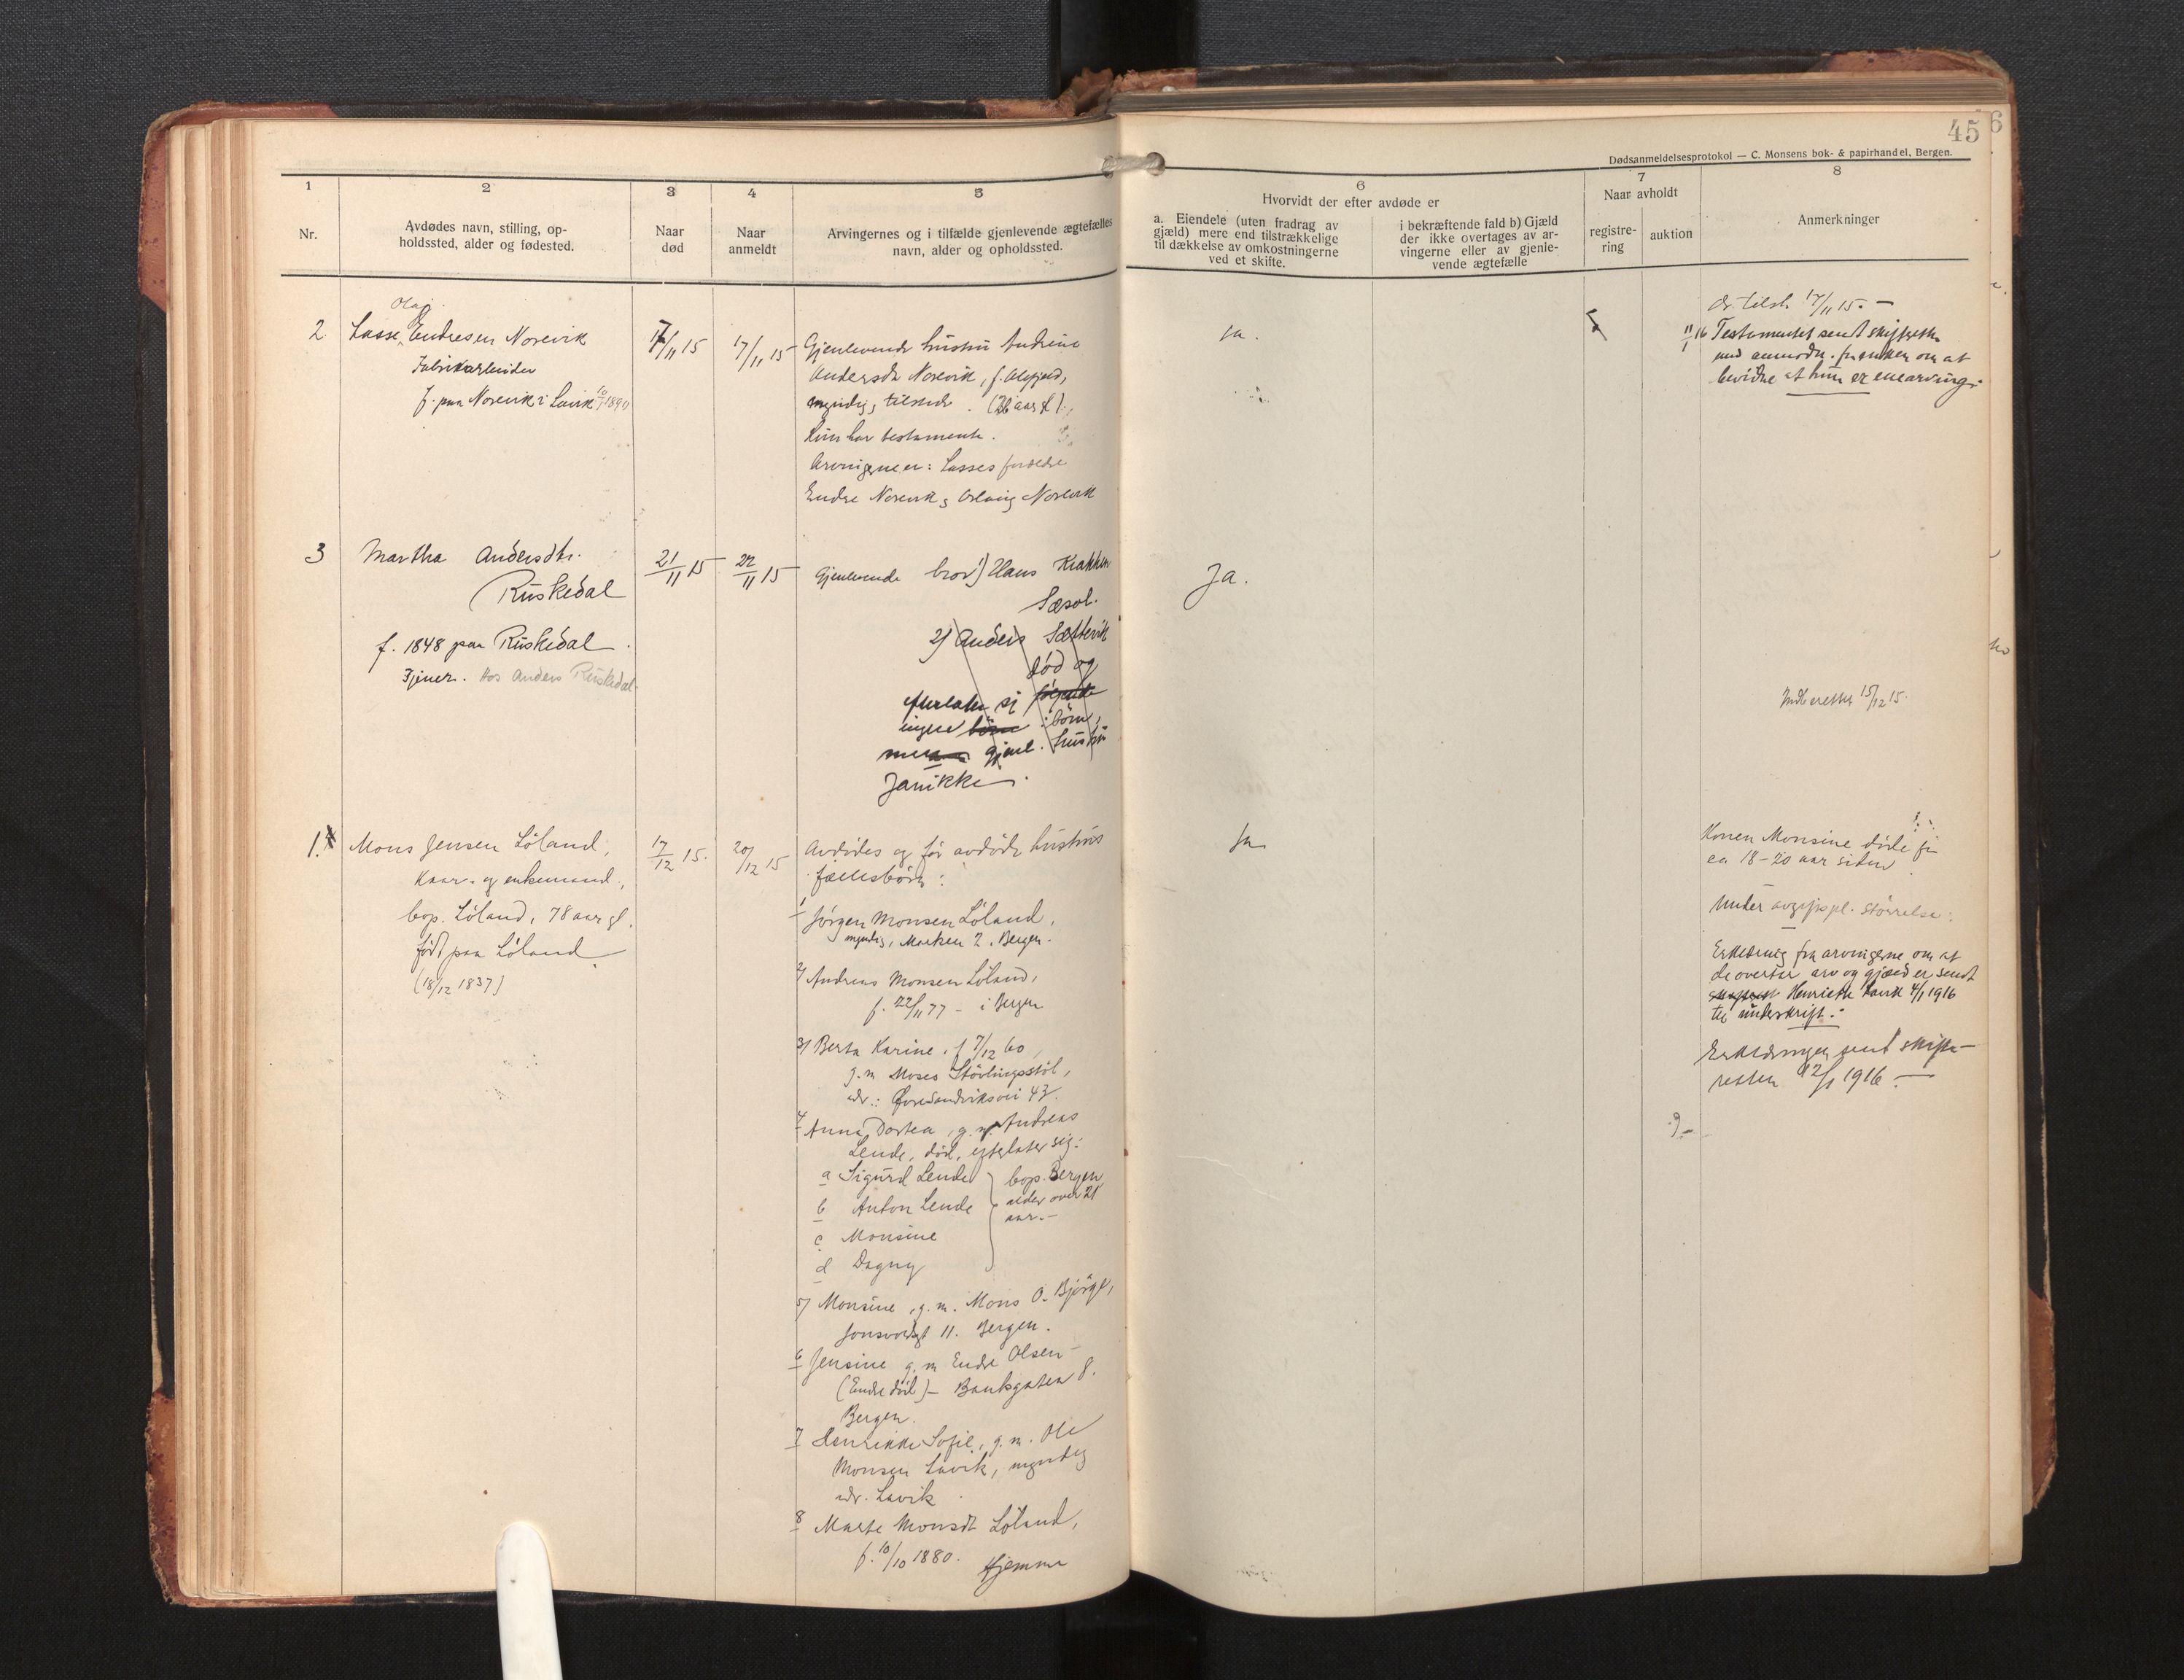 45
6
Dødsanmeldelsesprotokol — C. Monsens bok- & papirhandel, Bergen.
1
Nr.
2
Avdødes navn, stilling, op-
holdssted, alder og fødested.
3
Naar
død
4
Naar
anmeldt
5
Arvingernes og i tilfælde gjenlevende ægtefælles
navn, alder og opholdssted.
6
Hvorvidt der efter avdøde er
a. Eiendele (uten fradrag av
gjæld) mere end tilstrækkelige
til dækkelse av omkostningerne
ved et skifte.
i bekræftende fald b) Gjæld
der ikke overtages av ar-
vingerne eller av gjenle-
vende ægtefælle
7
Naar avholdt
registre-
ring
auktion
8
Anmerkninger
2
Olaj
Lasse Endresen Norevik
Fabrikarbeider
f. paa Norevik i Lavik
17/11 15
17/11 15
Gjenlevende hustru Andrine
Andersdt Norevik,
myndig, tilstede. (26 aar gl.)
Hun har testamente.
Arvingerne er: Lasses forældre
Endre Norevik & Norevik
Ja.
17/11 15. —
11/1 16 Testamentet sendt skifteretten
med anmodn. fra enken om at
bevidne at hun er enearving.
3
Martha Andersdtr.
Ruskedal
f. 1848 paa Ruskedal.
Tjener. Hos Anders Ruskedal.
21/11 15
22/11 15
Gjenlevende bror 1) Hans Krakken
Sæsol.
2) Anders Sættevik
død og
efterlater sig følgende
ingen børn børn,
men gjenl. hustru
Janikke.
Ja.
Indberettet 15/12 15.
1.
Mons Jensen Løland,
Kaar- og enkemand,
bop. Løland, 78 aar gl.
født paa Løland
(18/12 1837)
17/12 15.
20/12 15
Avdødes og før avdøde hustrus
fællesbørn:
1 Jørgen Monsen Løland,
myndig, Marken 2, Bergen.
2/ Andreas Monsen Løland,
f. 22/11 77 - i Bergen
3/ Berta Karine, f 7/12 60,
g. m Moses Støvlingsstøl,
adr.: Øvre Sandviksvei 47.
4 Anna Dortea, g. m. Andreas
Lende, død, efterlater sig:
a Sigurd Lende
b Anton Lende
c Monsine
d Dagny
bop. Bergen
alder over 21
aar. -
5/ Monsine, g. m. Mons O. Bjørge,
Jonsvoldgt 11. Bergen.
6 Jensine g. m Endre Olsen
(Endre død) — Bankgaten 8.
Bergen.
7 Henrikke Sofie, g. m. Ole
Monsen Lavik, myndig
adr. Lavik
8 Marte Monsdt Løland,
f. 10/10 1880. Hjemme
Ja
Konen Monsine døde for
ca 18-20 aar siden
Under avgiftspl. størrelse.
Erklæring fra arvingerne om at
de overtar arv og gjæld er sendt
Henriette Lavik 4/1 1916
til underskrift. -
Erklæringen sendt skifte-
retten 12/1 1916. —